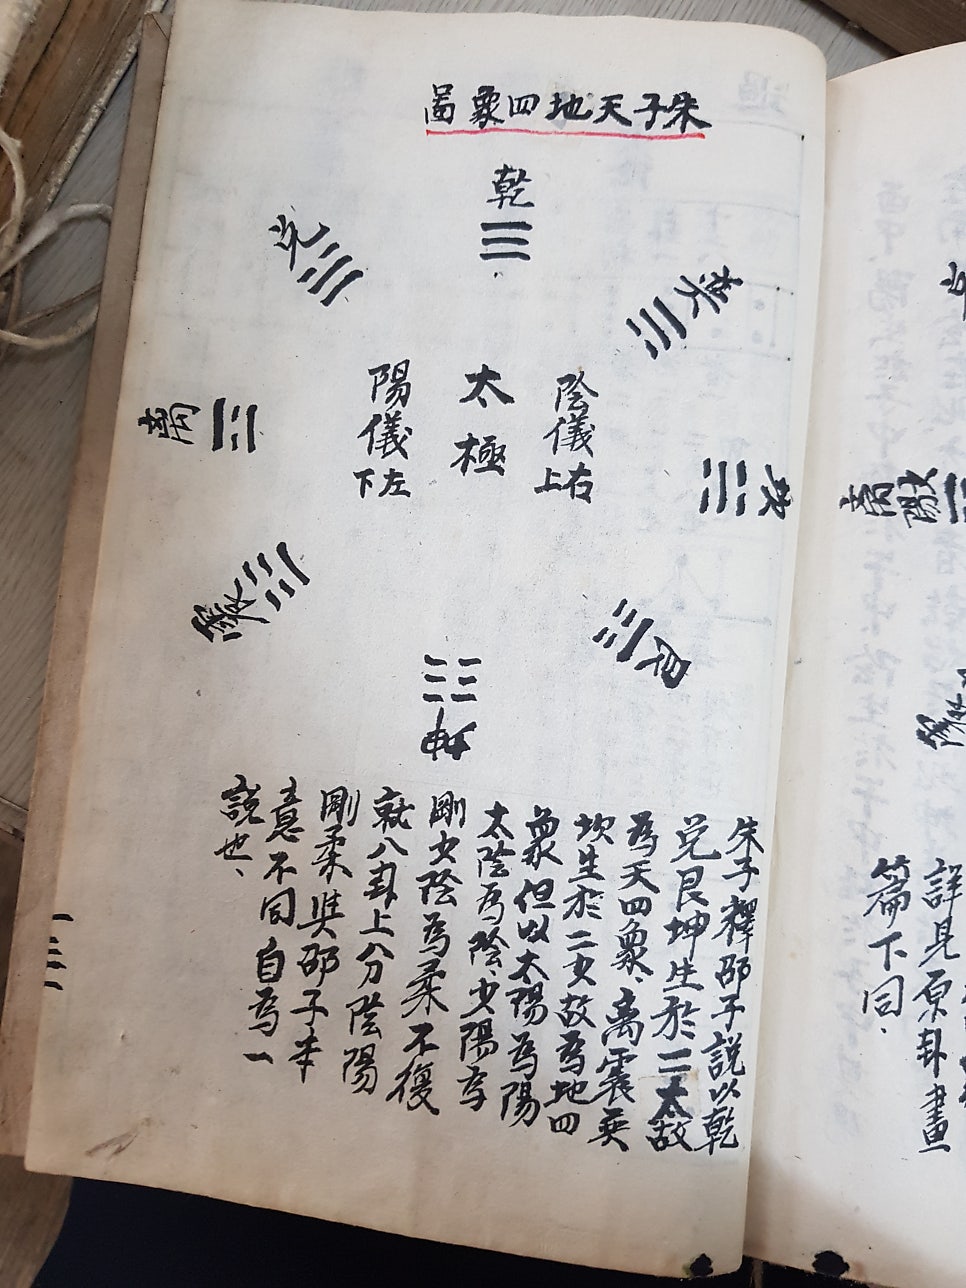 朱子天地四象啚
乾
兌
巽
离
坎
震
艮
坤
陰儀右上
太極
陽儀左下
朱子釋邵子說以乾
兌艮坤生於二太故
為天四象、离震巽
坎生於二少故為地四
象但以太陽為陽
太陰為陰、少陽為
剛少陰為柔不復
就八卦上分陰陽
剛柔與邵子本
意不同自為一
說也、
詳見原卦畫
篇下同、
离
震